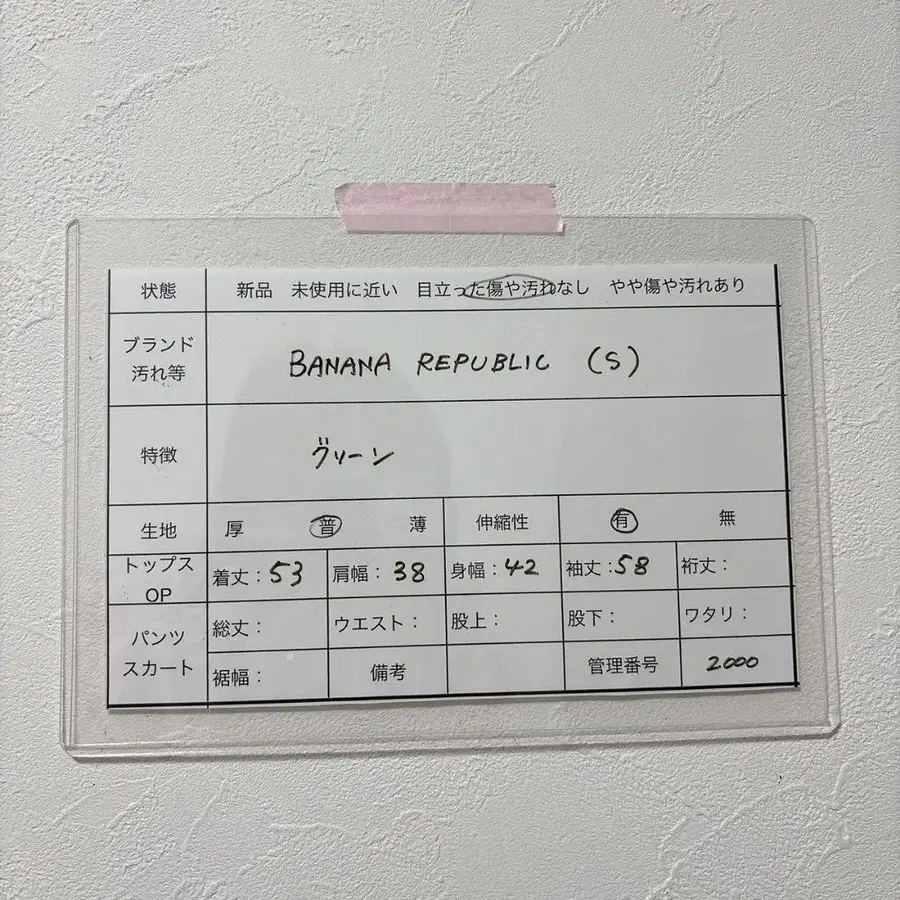 状態 新品 未使用に近い 目立った傷や汚れなし やや傷や汚れあり
ブランド
汚れ等
BANANA REPUBLIC (S)
特徴 グリーン
生地 厚 普 薄 伸縮性 有 無
トップス
OP
着丈：53 肩幅：38 身幅：42 袖丈：58 裄丈：
パンツ
スカート
総丈： ウエスト： 股上： 股下： ワタリ：
裾幅： 備考 管理番号 2000